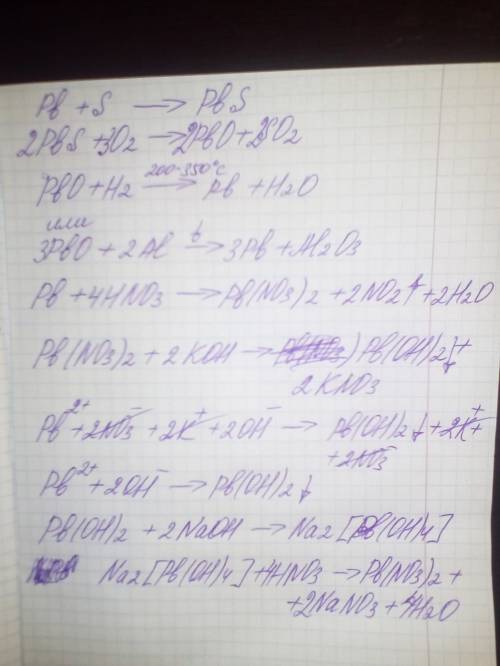 Pb + S → PbS
2PbS + 3O2 → 2PbO + 2SO2
200-350°C
PbO + H2 → Pb + H2O
или
3PbO + 2Al t→ 3Pb + Al2O3
Pb + 4HNO3 → Pb(NO3)2 + 2NO2↑ + 2H2O
Pb(NO3)2 + 2KOH → Pb(OH)2↓ +
2KNO3
Pb2+ + 2NO3- + 2K+ + 2OH- → Pb(OH)2↓ + 2K+
+ 2NO3-
Pb2+ + 2OH- → Pb(OH)2↓
Pb(OH)2 + 2NaOH → Na2[Pb(OH)4]
Na2[Pb(OH)4] + 4HNO3 → Pb(NO3)2 +
+ 2NaNO3 + 4H2O